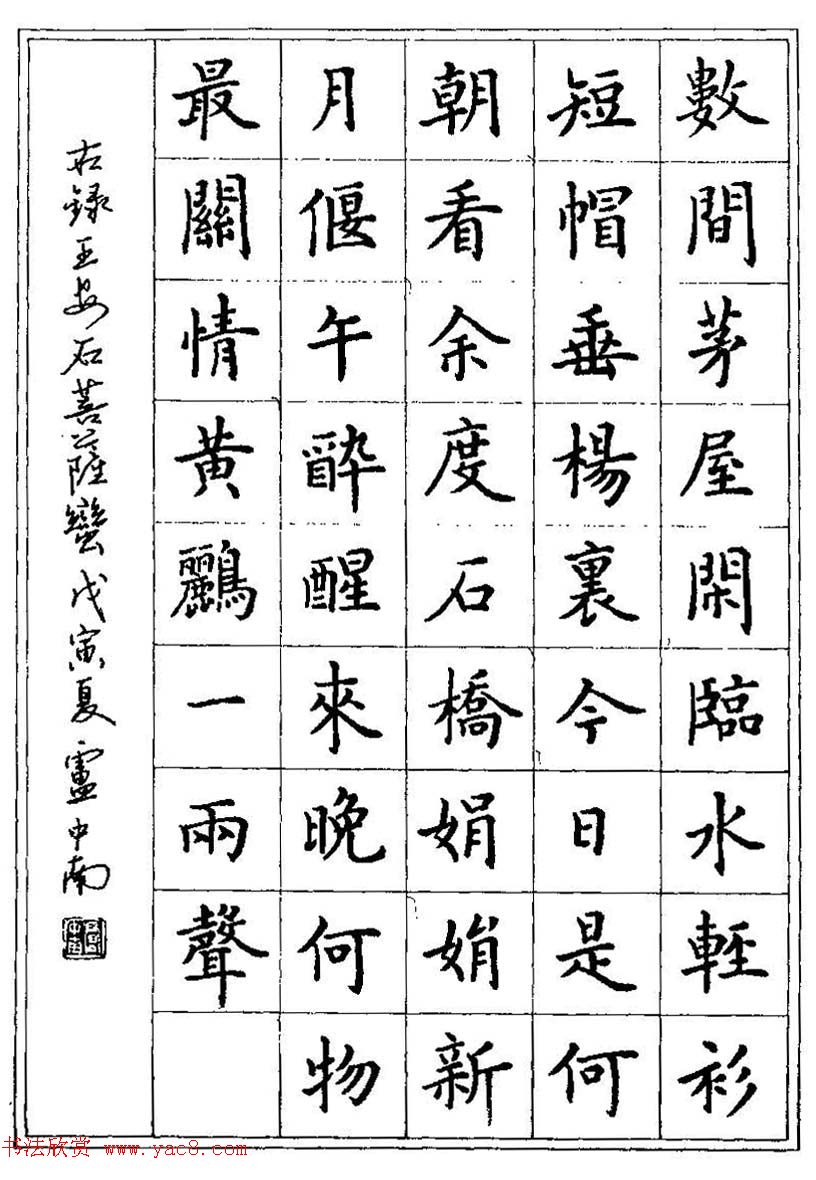 數間茅屋閑臨水輕衫
短帽垂楊裏今日是何
朝看余度石橋娟娟新
月偃午醉醒來晚何物
最關情黃鸝一兩聲
右錄王安石菩薩蠻戊寅夏盧中南
书法欣赏 www.yac8.com